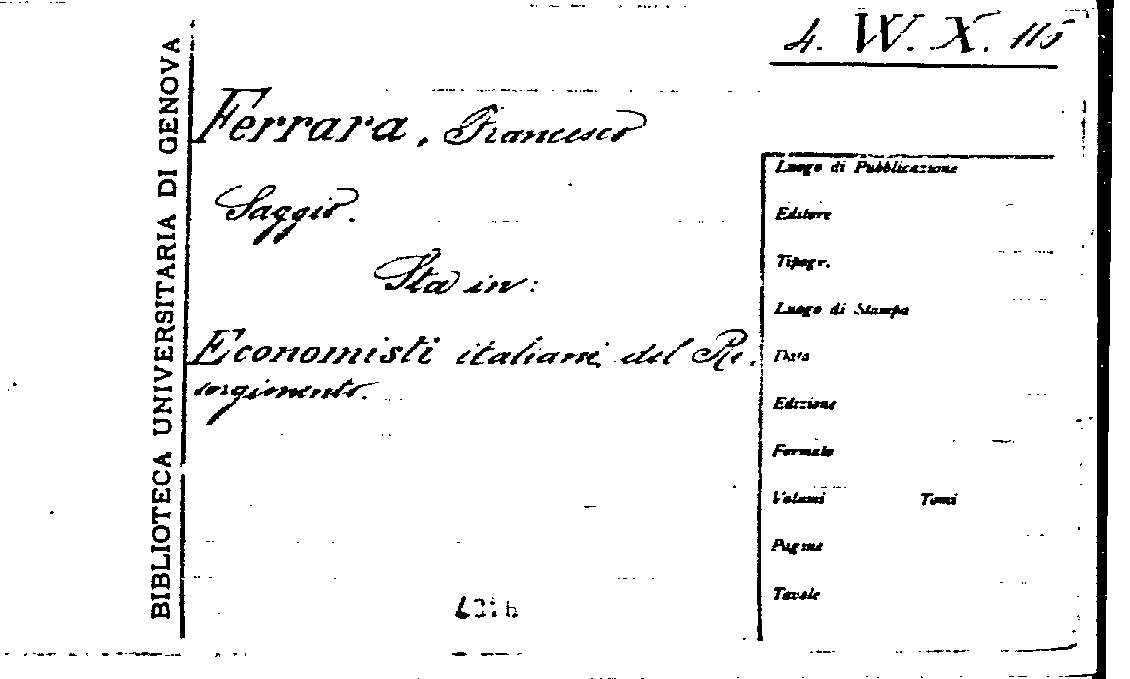 4. W. X. 115
BIBLIOTECA UNIVERSITARIA DI GENOVA
Ferrara, Francesco
Saggio.
Sta in:
Economisti italiani del Ri-
sorgimento.
Luogo di Pubblicazione
Editore
Tipogr.
Luogo di Stampa
Data
Edizione
Formato
Volumi Tomi
Pagine
Tavole